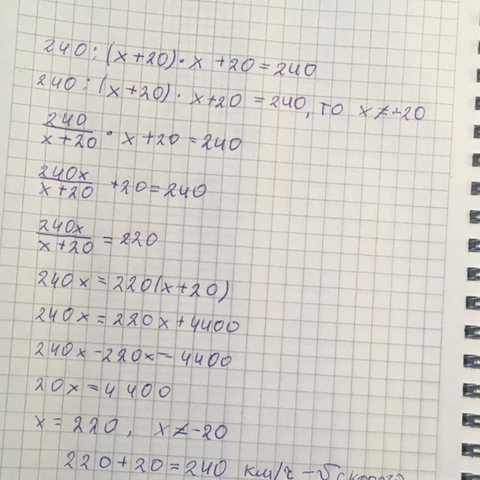 240 : (x+20) · x + 20 = 240
240 : (x+20) · x+20 = 240, то x ≠ -20
240/x+20 · x+20 = 240
240x/x+20 +20 = 240
240x/x+20 = 220
240x = 220(x+20)
240x = 220x + 4400
240x - 220x - 4400
20x = 4400
x = 220, x ≠ -20
220 + 20 = 240 км/ч -